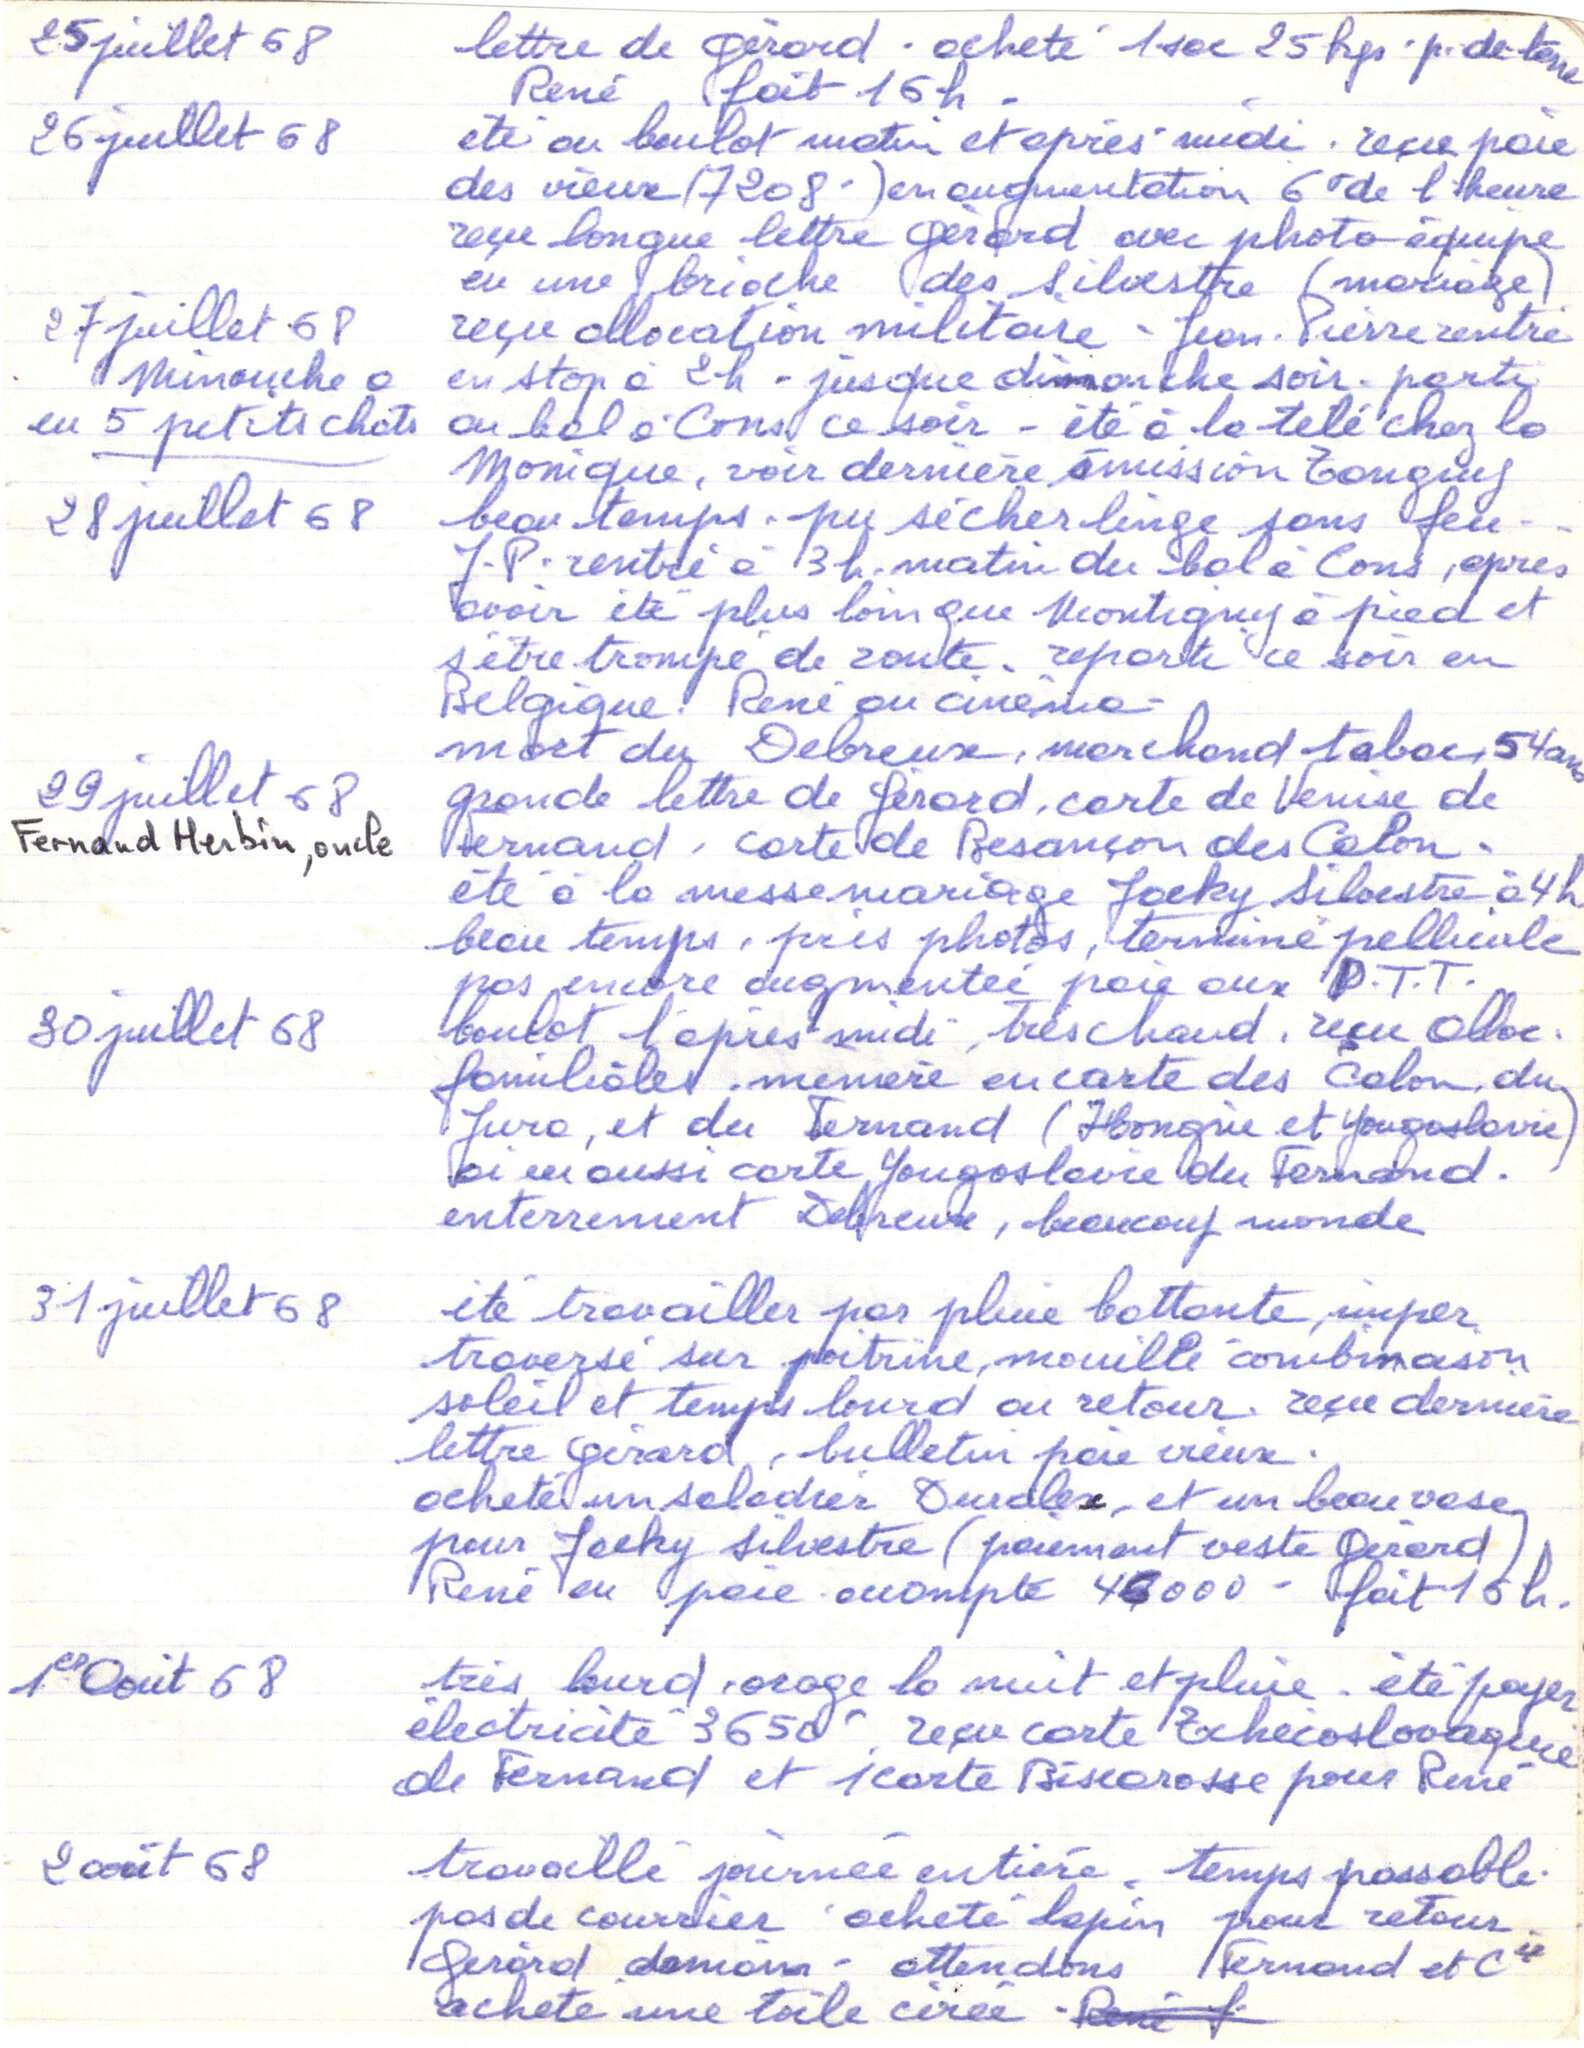 25 juillet 68 lettre de Gérard. acheté 1 sac 25 kgs. p. de terre
René fait 16 h.
26 juillet 68 été au boulot matin et après-midi. reçu paie
des vieux (7208.-) en augmentation 6F de l'heure
reçu longue lettre Gérard avec photo équipe
eu une brioche des Silvestre (mariage)
27 juillet 68 reçu allocation militaire - Jean-Pierre rentré
Minouche a en stop à 2h - jusque dimanche soir. parti
eu 5 petits chats au bal à Cons ce soir - été à la télé chez la
Monique, voir dernière émission Tanguy
28 juillet 68 beau temps. pu sécher linge sans feu -
J.P. rentré à 3h. matin du bal à Cons, après
avoir été plus loin que Montigny à pied et
s'être trompé de route. reparti ce soir en
Belgique. René au cinéma -
mort du Debreux, marchand tabac, 54 ans
29 juillet 68 grande lettre de Gérard, carte de Venise de
Fernand Herbin, oncle Fernand, carte de Besançon des Colon.
été à la messe mariage Jacky Silvestre à 4h
beau temps, pris photos, terminé pellicule
pas encore augmentée paie aux P.T.T.
30 juillet 68 boulot l'après-midi, très chaud. reçu alloc.
familiales. mémère eu carte des Colon, du
Jura, et du Fernand (Hongrie et Yougoslavie)
ai eu aussi carte Yougoslavie du Fernand.
enterrement Debreux, beaucoup monde
31 juillet 68 été travailler par pluie battante, imper
traversé sur poitrine, mouillé combinaison
soleil et temps lourd au retour. reçu dernière
lettre Gérard, bulletin paie vieux.
acheté un saladier Duralex, et un beau vase
pour Jacky Silvestre (paiement veste Gérard)
René eu paie acompte 46000 - fait 16 h.
1er Août 68 très lourd, orage la nuit et pluie. été payer
électricité 3650F, reçu carte Tchécoslovaquie
de Fernand et 1 carte Biscarosse pour René
2 août 68 travaillé journée entière. temps passable.
pas de courrier. acheté lapin pour retour
Gérard demain - attendons Fernand et Cie
acheté une toile cirée -